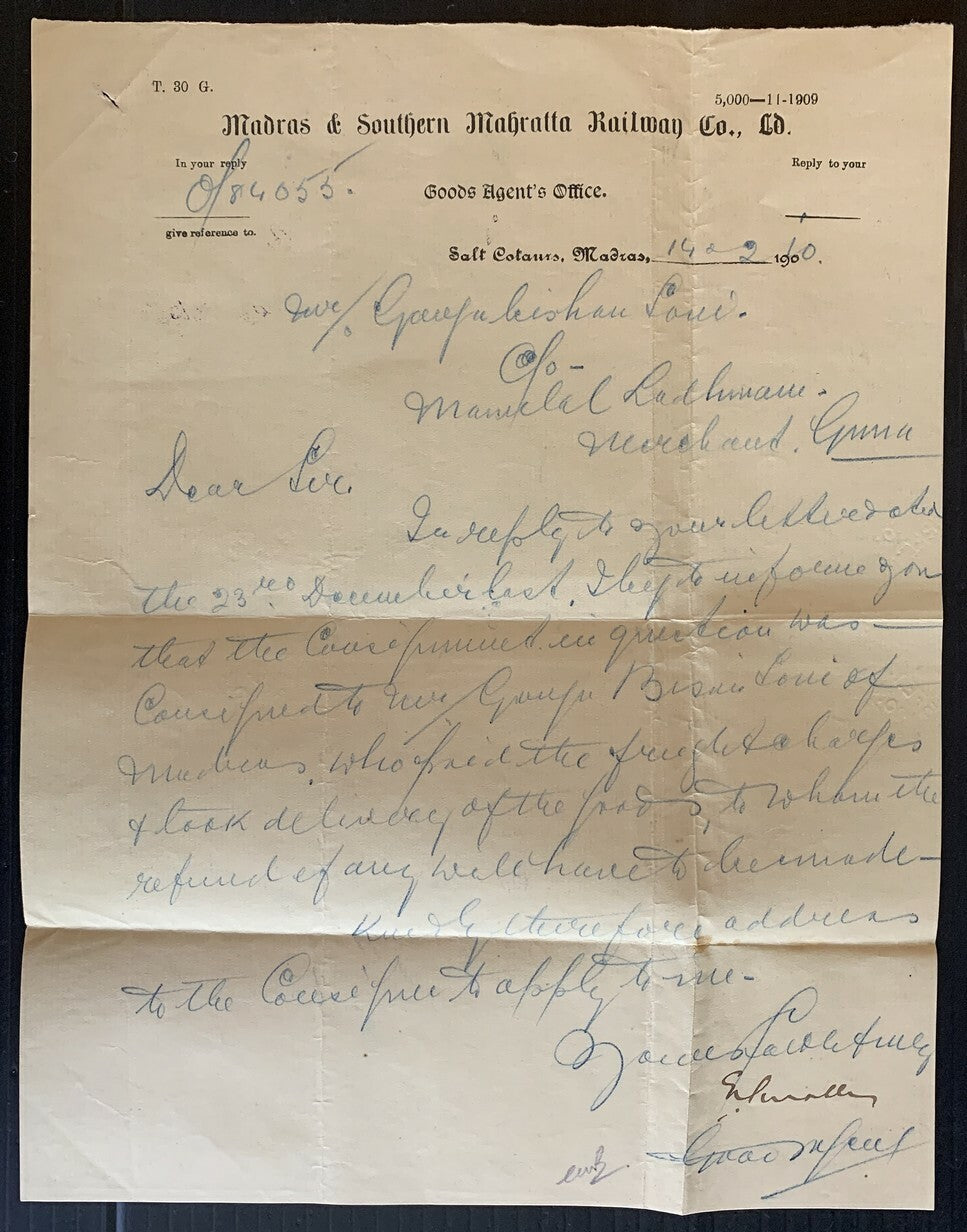 T. 30 G.
5,000—11-1909
Madras & Southern Mahratta Railway Co., Ld.
In your reply
Reply to your
O/84055.
Goods Agent's Office.
give reference to.
Salt Cotaurs, Madras, 14-2 1910.
Mr/ Gangabishan Soni.
C/o-
Ladhuram.
Merchant. Guna
Dear Sir.
In reply to your letter dated
the 23rd December last, I beg to inform you
that the Consignment in question was—
Consigned to Mr/ Ganga Bisan Soni of
Madras, who paid the freight charges
& took delivery of the goods, to whom the
refund if any will have to be made—
Kindly therefore address
to the Consignee to apply to me-
Yours faithfully
Goods Agent